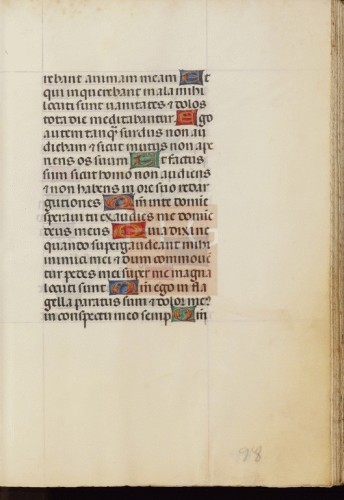 rebant animam meam Et
qui inquerebant mala mihi
locuti sunt vanitates & dolos
tota die meditabantur. Ego
autem tanq̃ surdus non au
diebam & sicut mutus non ape
riens os suum Et factus
sum sicut homo non audiens
& non habens in ore suo redar
gutiones Qm̃ in te domie
speravi tu exaudies me domie
deus meus Quia dixi ne
quando supergaudeant mihi
inimici mei & dum commove
tur pedes mei super me magna
locuti sunt Qm̃ ego in fla
gella paratus sum & dolor me9
in conspectu meo semp Qm̃
98